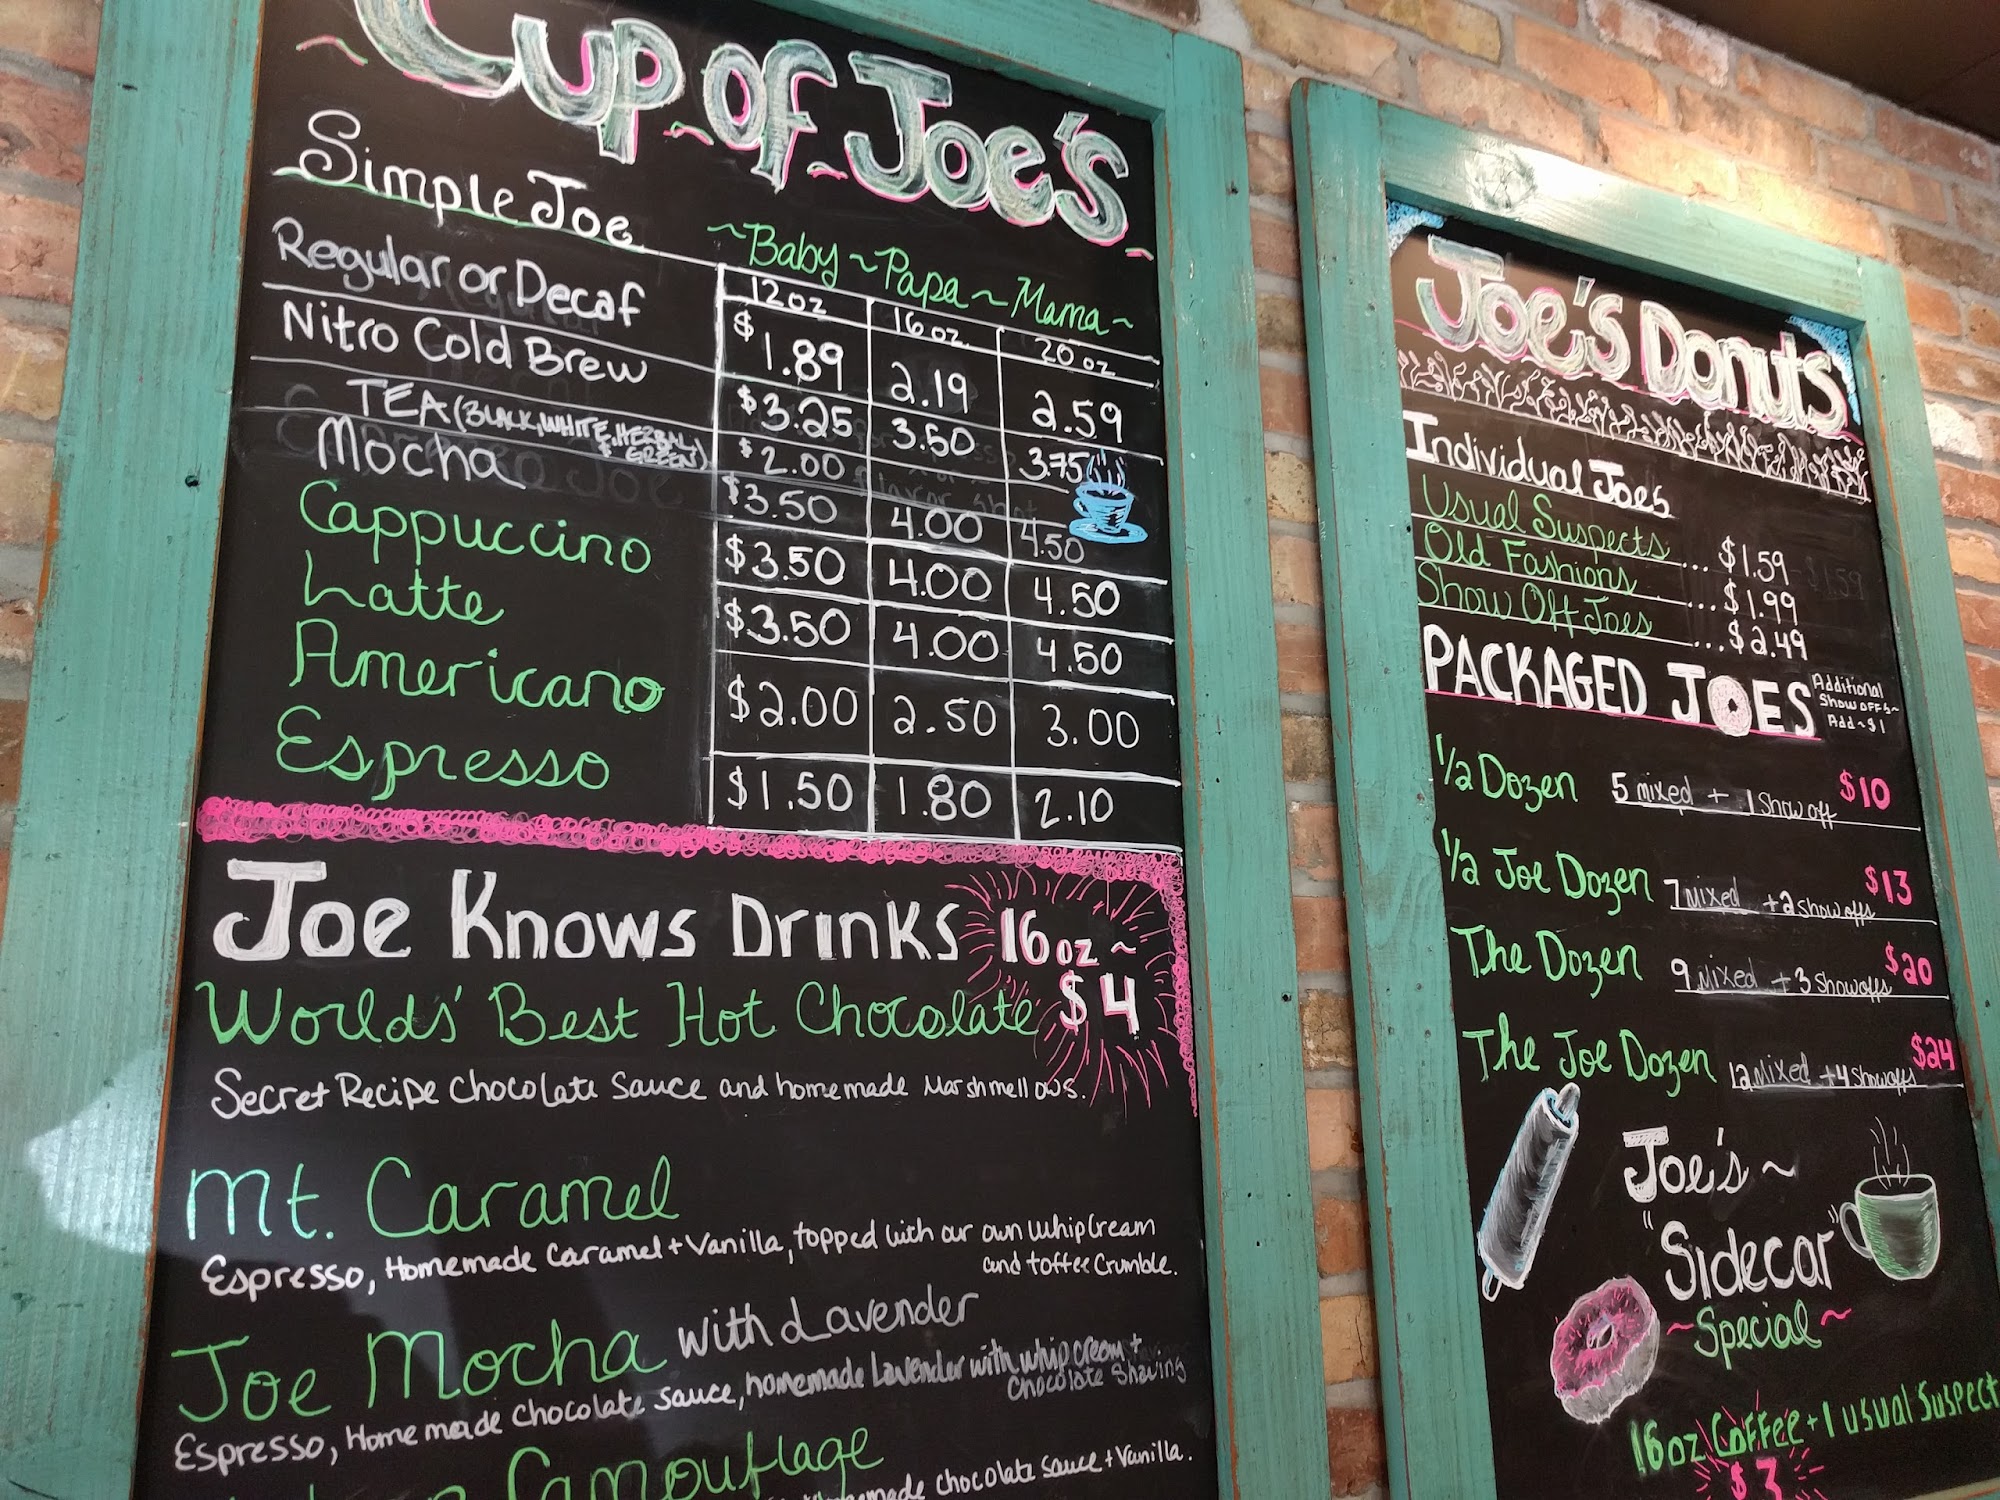 Cup of Joe's
Simple Joe
~Baby~Papa~Mama~
12oz 16oz. 20oz
Regular or Decaf $1.89 2.19 2.59
Nitro Cold Brew $3.25 3.50 3.75
TEA (BLACK, WHITE, HERBAL, $2.00
& GREEN)
Mocha $3.50 4.00 4.50
Cappuccino $3.50 4.00 4.50
Latte $3.50 4.00 4.50
Americano $2.00 2.50 3.00
Espresso $1.50 1.80 2.10
Joe Knows Drinks 16oz~
$4
Worlds' Best Hot Chocolate
Secret Recipe Chocolate Sauce and homemade Marshmellows.
Mt. Caramel
Espresso, Homemade Caramel + Vanilla, topped with our own whip Cream
and toffee Crumble.
Joe Mocha with Lavender
Espresso, Homemade Chocolate sauce, homemade Lavender with whip cream +
Chocolate Shaving
Camouflage
chocolate sauce + Vanilla.
Joe's Donuts
Individual Joes
Usual Suspects ... $1.59
Old Fashions ... $1.99
Show Off Joes ... $2.49
PACKAGED JOES
Additional
Show offs~
Add~$1
1/2 Dozen 5 mixed + 1 show off $10
1/2 Joe Dozen 7 mixed +2 show offs $13
The Dozen 9 mixed +3 show offs $20
The Joe Dozen 12 mixed +4 show offs $24
Joe's~
"Sidecar"
~Special~
16oz Coffee + 1 usual Suspect
$3